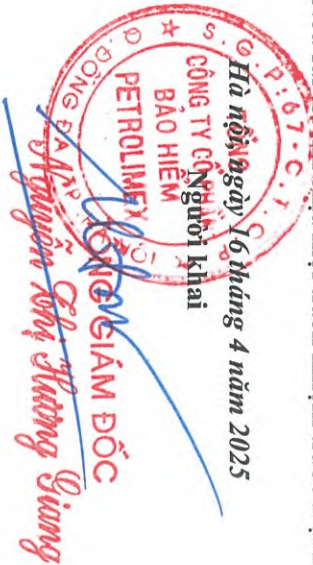 Hà nội, ngày 16 tháng 4 năm 2025
Người khai
S.G.P:67-C.T.C.P
CÔNG TY CỔ PHẦN
BẢO HIỂM
PETROLIMEX
Q. ĐỐNG ĐA
TỔNG GIÁM ĐỐC
Nguyễn Thị Hương Giang